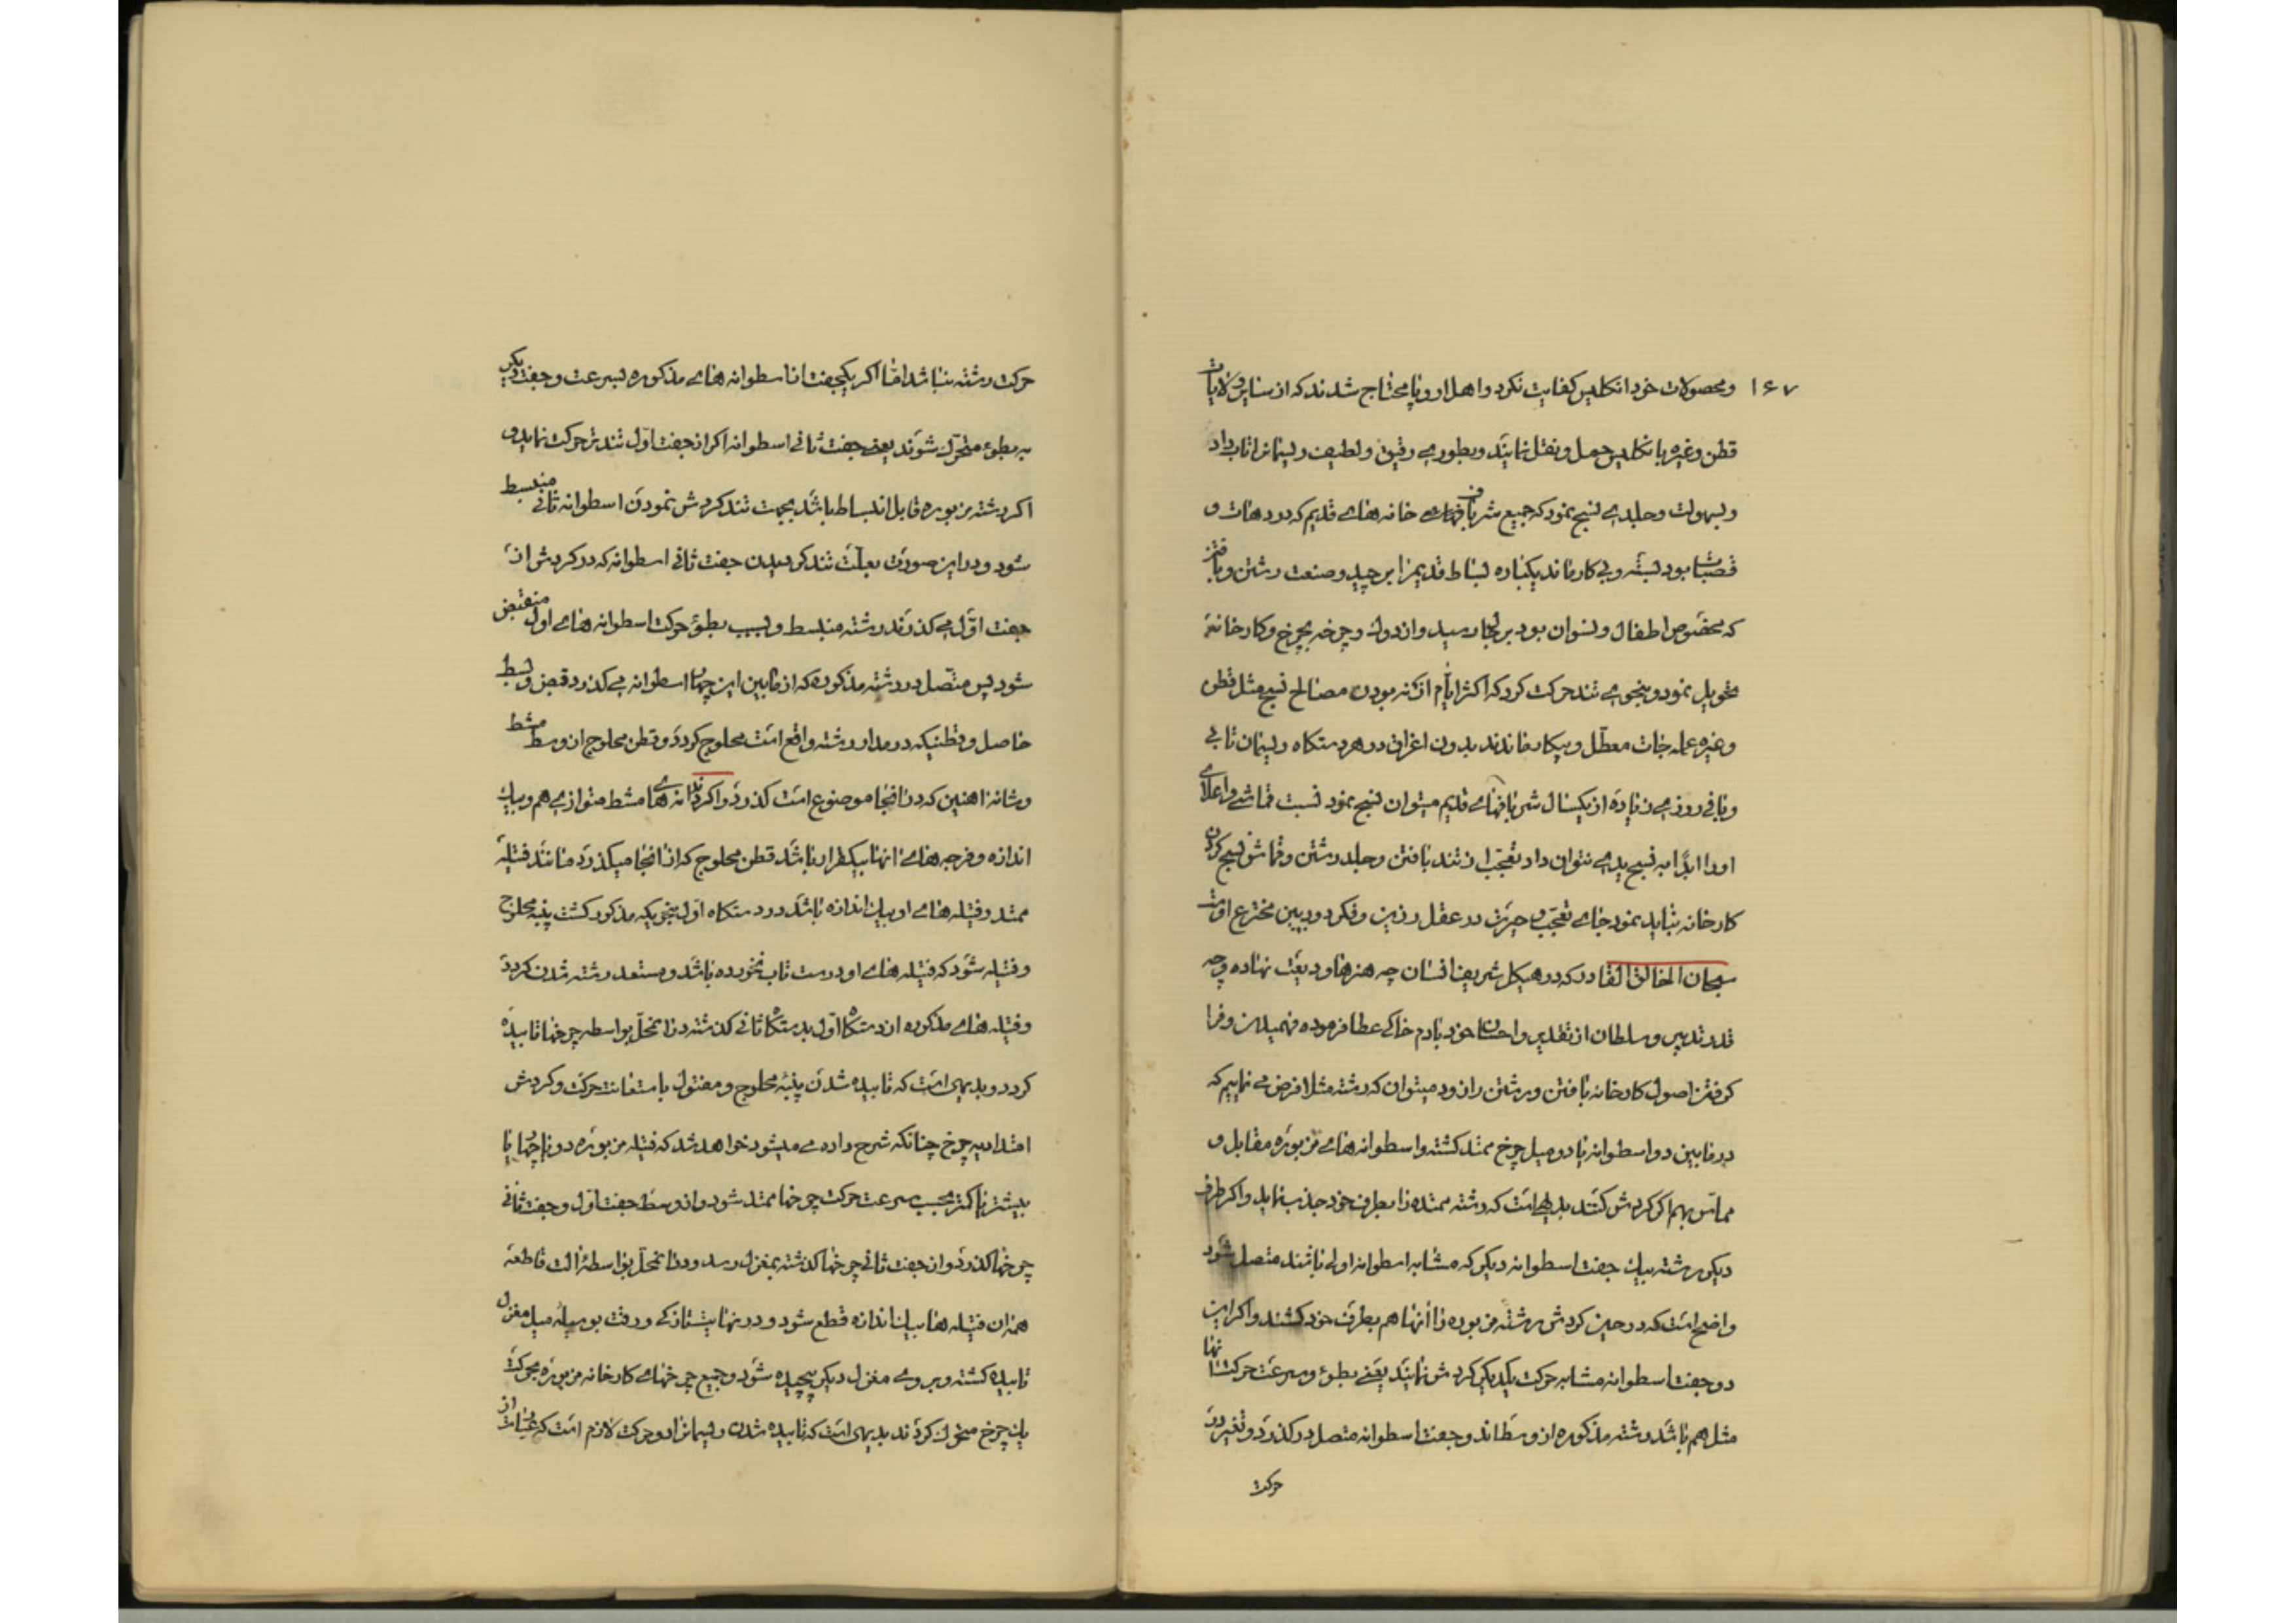 ۱۶۷
ومحصولات خود انکلیس کفایت نکرد واهل اروپا محتاج شدند که از سایر ولایات
قطن وغیره بانکلیس حمل ونقل نمایند وبطوری رقیق ولطیف ریسمانرا تاب داد
وبسهولت وجلدی نسج نمود که جمیع شربافهای خانه های قدیم که در دهات و
قصبات بود بسته وبی کار ماند یکباره بساط قدیمرا برچید وصنعت رشتن وبافتن
که مخصوص اطفال ونسوان بود برجال رسید واز دوک وچرخه بچرخ وکارخانه
تحویل نمود وبنحوی تند حرکت کرد که اکثر ایام از نبودن مصالح نسج مثل قطن
وغیره عمله جات معطل وبیکار ماندند بدون اغراق در هر دستکاه ریسمان تابی
وبافی روزی زیاده از یکسال شربافهای قدیم میتوان نسج نمود نسبت قماشی واعلای
اورا ابدا به نسج یدی نتوان داد تعجب از تند بافتن وجلد رشتن وقماش نسج کردن
کارخانه نباید نمود جای تعجب وحیرت در عقل رزین وفکر دوربین مخترع اوست
سبحان الخالق القادر که در هیکل شریف انسان چه هنرها ودیعت نهاده وچه
قدر تدبیر وسلطان از تقدیر واحسان خود بادم خاکی عطا فرموده فهمیدن وفرا
کرفتن اصول کارخانه بافتن ورشتن را زود میتوان که رشته مثلا فرض می نماییم که
در مابین دو اسطوانه یا دو میل چرخ ممتد کشته واسطوانه های مزبوره مقابل و
مماس بهم اکر کردش کنند بدیهی است که رشته ممتده را بطرف خود جذب نماید واکر طرف
دیکر رشته بیک جفت اسطوانه دیکر که مشابه اسطوانه اولی باشند متصل شود
واضح است که در حین کردش رشته مزبوره را آنها هم بطرف خود کشند واکر این
دو جفت اسطوانه مشابه حرکت یکدیکر کردش نمایند یعنی بطوء وسرعت حرکت آنها
مثل هم باشد رشته مذکوره از وسط اند وجفت اسطوانه متصل در کذرد وتغیر در
حرکت
حرکت رشته نباشد اما اکر یکجفت از اسطوانه های مذکوره بسرعت وجفت دیکر
به بطوء متحرک شوند یعنی جفت ثانی اسطوانه اکر از جفت اول تندتر حرکت نماید و
اکر رشته مزبوره قابل انبساط باشد بجهت تند کردش نمودن اسطوانه ثانی منبسط
شود ودر این صورت بعلت تند کردیدن جفت ثانی اسطوانه که در کردش از
جفت اول می کذرند رشته منبسط وبسبب بطوء حرکت اسطوانه های اول منقبض
شود پس متصل در رشته مذکوره که از مابین این چهار اسطوانه می کذرد قبض وبسط
حاصل وقطنیکه در مدار رشته واقع است محلوج کردد وقطن محلوج از وسط مشط
وشانه اهنین که در انجا موضوع است کذرد واکر دندانه های مشط متوازی هم وبیک
اندازه وفرجه های آنها بیکقرار باشد قطن محلوج که از انجا میکذرد مانند فتیله
ممتد وفتیله های او بیک اندازه باشد در دستکاه اول بنحویکه مذکور کشت پنبه محلوج
وفتیله شود که فتیله های او درست تاب نخورده باشد ومستعد رشته شدن کردد
وفتیله های مذکوره از دستکاه اول بدستکاه ثانی کذشته در انمحل بواسطه چرخها تابیده
کردد وبدیهی است که تابیده شدن پنبه محلوج ومفتول باستعانت حرکت وکردش
امتدادیه چرخ چنانکه شرح داده می میشود خواهد شد که فتیله مزبوره دو یا چهار یا
بیشتر یا کمتر بحسب سرعت حرکت چرخها ممتد شود واز وسط جفت اول وجفت ثانی
چرخها کذرد واز جفت ثانی چرخها کذشته بمغزل رسد ودر انمحل بواسطه الت قاطعه
همه ان فتیله ها بیک اندازه قطع شود ودر نهایت نازکی ورقت بوسیله میل مغزل
تابیده کشته وبروی مغزل دیکر پیچیده شود وجمیع چرخهای کارخانه مزبوره بحرکت
یک چرخ متحرک کردند بدیهی است که تابیده شدن ریسمانرا دو حرکت لازم است که عبارت از